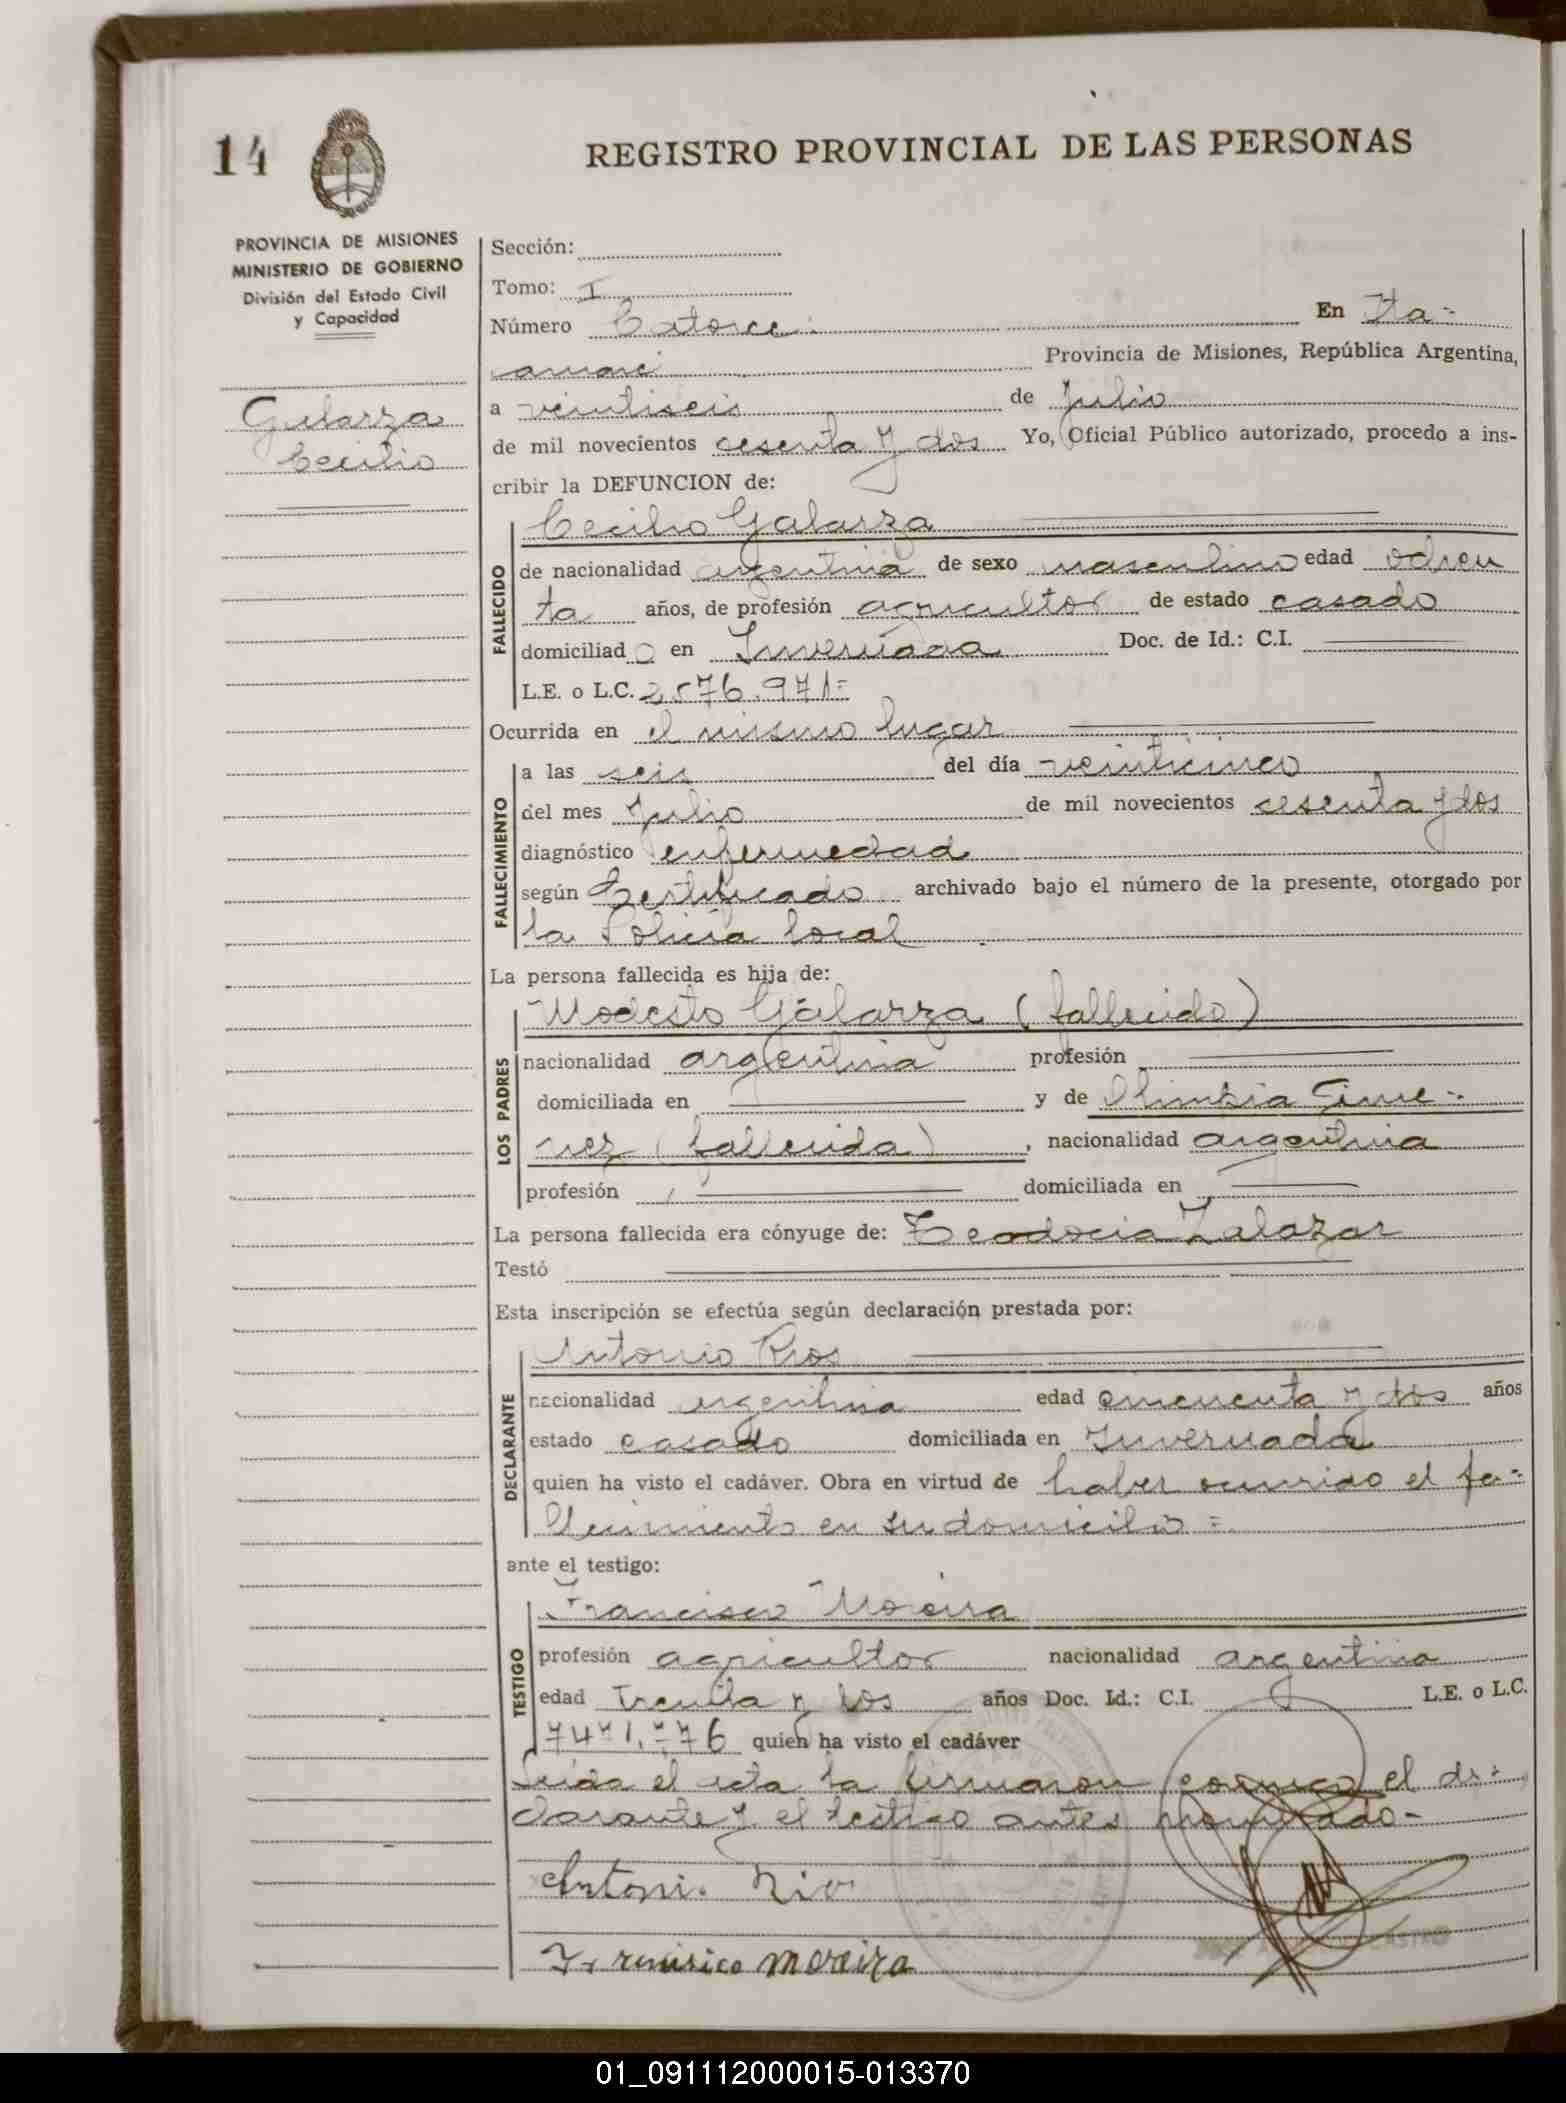 14
REGISTRO PROVINCIAL DE LAS PERSONAS
PROVINCIA DE MISIONES
MINISTERIO DE GOBIERNO
División del Estado Civil
y Capacidad
Galarza
Cecilio
Sección:
Tomo: I
Número Catorce. En Ita-
Provincia de Misiones, República Argentina,
a veintiseis de Julio
de mil novecientos sesenta y dos Yo, Oficial Público autorizado, procedo a ins-
cribir la DEFUNCION de:
FALLECIDO
Cecilio Galarza
de nacionalidad argentina de sexo masculino edad ochen
ta años, de profesión agricultor de estado casado
domiciliado en Invernada Doc. de Id.: C.I.
L.E. o L.C. 2.576.971=
Ocurrida en el mismo lugar
FALLECIMIENTO
a las seis del día veinticinco
del mes Julio de mil novecientos sesenta y dos
diagnóstico enfermedad
según Certificado archivado bajo el número de la presente, otorgado por
la Policia local
La persona fallecida es hija de:
LOS PADRES
Modesto Galarza (fallecido)
nacionalidad argentina profesión
domiciliada en y de Olimpia Gime-
nez (fallecida), nacionalidad argentina
profesión domiciliada en
La persona fallecida era cónyuge de: Teodocia Zalazar
Testó
Esta inscripción se efectúa según declaración prestada por:
DECLARANTE
Antonio Rios
nacionalidad argentina edad cincuenta y dos años
estado casado domiciliada en Invernada
quien ha visto el cadáver. Obra en virtud de haber ocurrido el fa-
llecimiento en su domicilio =
ante el testigo:
TESTIGO
Francisco Moreira
profesión agricultor nacionalidad argentina
edad treinta y dos años Doc. Id.: C.I. L.E. o L.C.
quien ha visto el cadáver
Leida el acta la firmaron conmigo el de-
clarante y el testigo antes nombrado-
Antonio Rio
moreira
CASTRO
01_091112000015-013370